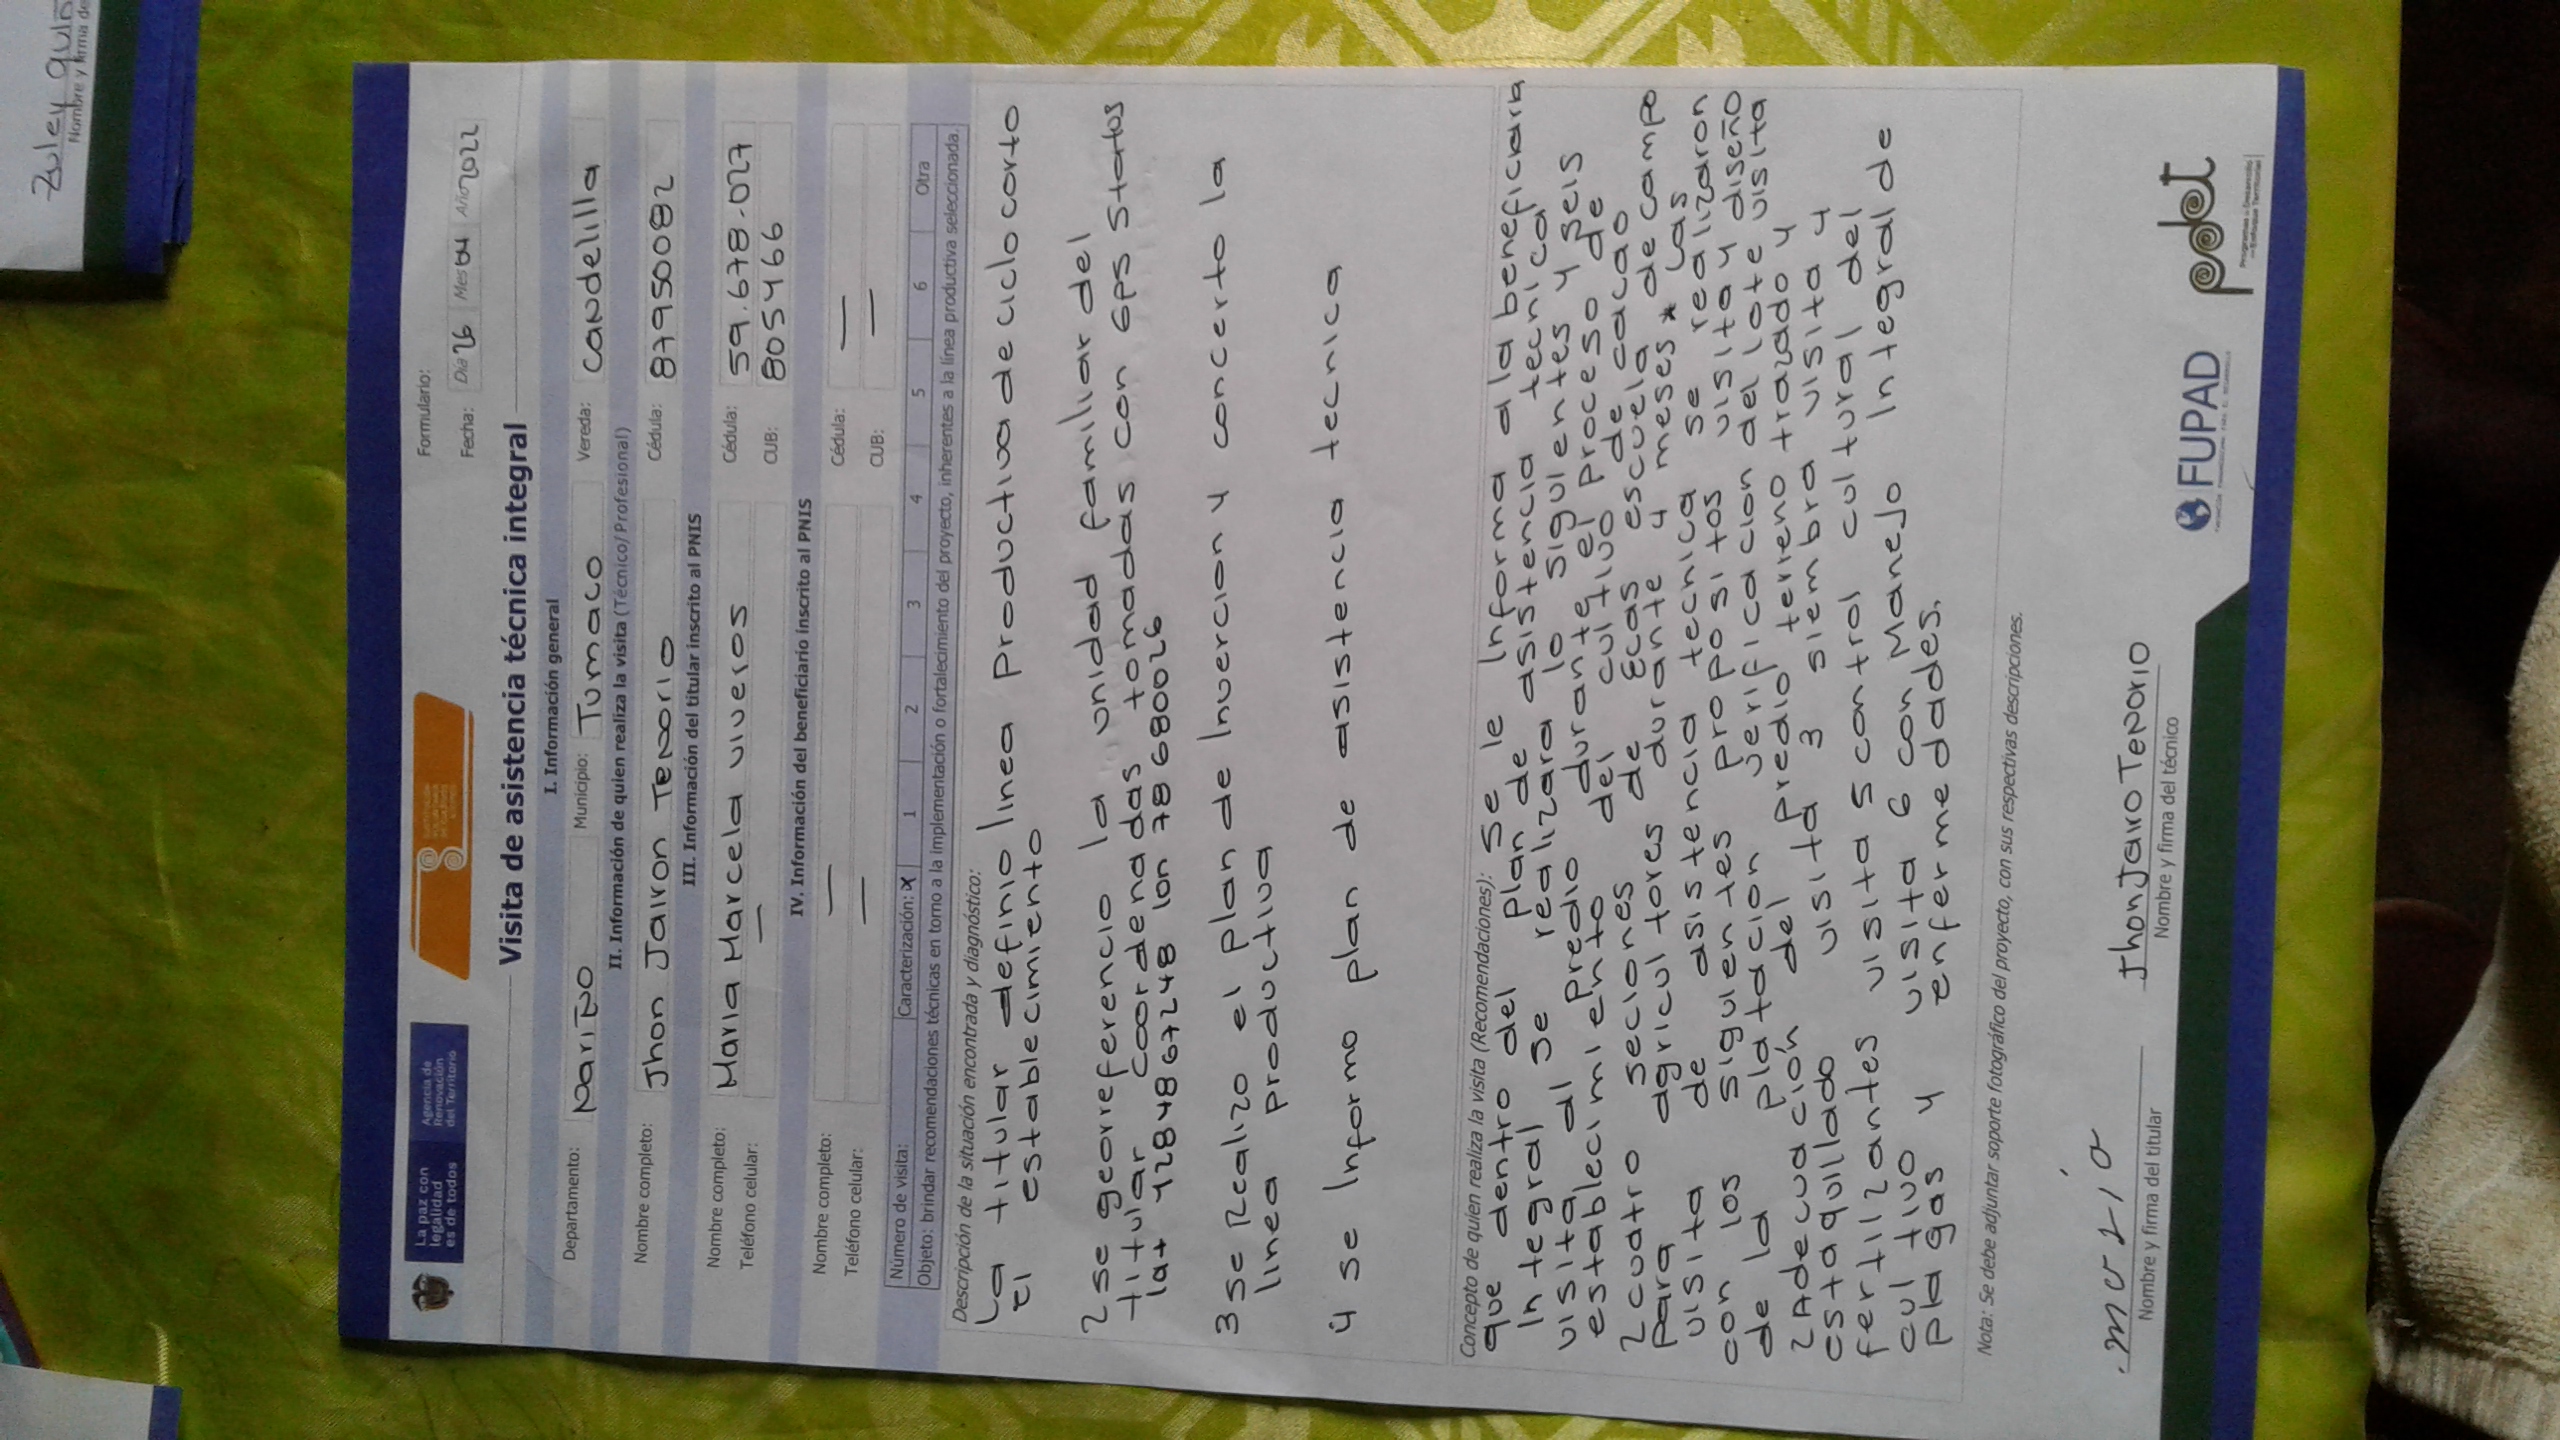 Zuley
Nombre y firma de
La paz con
legalidad
es de todos
Agencia de
Renovación
del Territorio
Formulario:
Fecha: Día 26 Mes 04 Año 2022
Visita de asistencia técnica integral
I. Información general
Departamento: Nariño Municipio: Tumaco Vereda: Candelilla
II. Información de quien realiza la visita (Técnico/ Profesional)
Nombre completo: Jhon Jairon Tenorio Cédula: 87950082
III. Información del titular inscrito al PNIS
Nombre completo: Maria Marcela viveros Cédula: 59.678.027
Teléfono celular: — CUB: 805466
IV. Información del beneficiario inscrito al PNIS
Nombre completo: — Cédula: —
Teléfono celular: — CUB: —
Número de visita: Caracterización: x 1 2 3 4 5 6 Otra
Objeto: brindar recomendaciones técnicas en torno a la implementación o fortalecimiento del proyecto, inherentes a la línea productiva seleccionada.
Descripción de la situación encontrada y diagnóstico:
La titular definio linea productiva de ciclo corto
El establecimiento
2 se georreferencio la unidad familiar del
titular coordenadas tomadas con GPS Status
lat 4284867248 lon 78 680026
3 se Realizo el plan de Invercion y concerto la
linea productiva
4 se Informo plan de asistencia tecnica
Concepto de quien realiza la visita (Recomendaciones): se le Informa a la beneficiaria
que dentro del plan de asistencia tecnica
Integral se realizara lo siguientes y seis
visita al predio durante el proceso de
establecimiento del cultivo de cacao
2 cuatro seciones de Ecas escuela de campo
para agricultores durante 4 meses * Las
visita de asistencia tecnica se realizaron
con los siguientes propositos visita y diseño
de la platacion verificacion del lote visita
2 Adecuación del predio terreno trazado y
estaquillado visita 3 siembra visita 4
fertilizantes visita 5 control cultural del
cultivo visita 6 con Manejo Integral de
plagas y enfermedades.
Nota: Se debe adjuntar soporte fotográfico del proyecto, con sus respectivas descripciones.
Jhon Jairo Tenorio
Nombre y firma del titular Nombre y firma del técnico
FUPAD
pdet
Programas de Desarrollo
con Enfoque Territorial